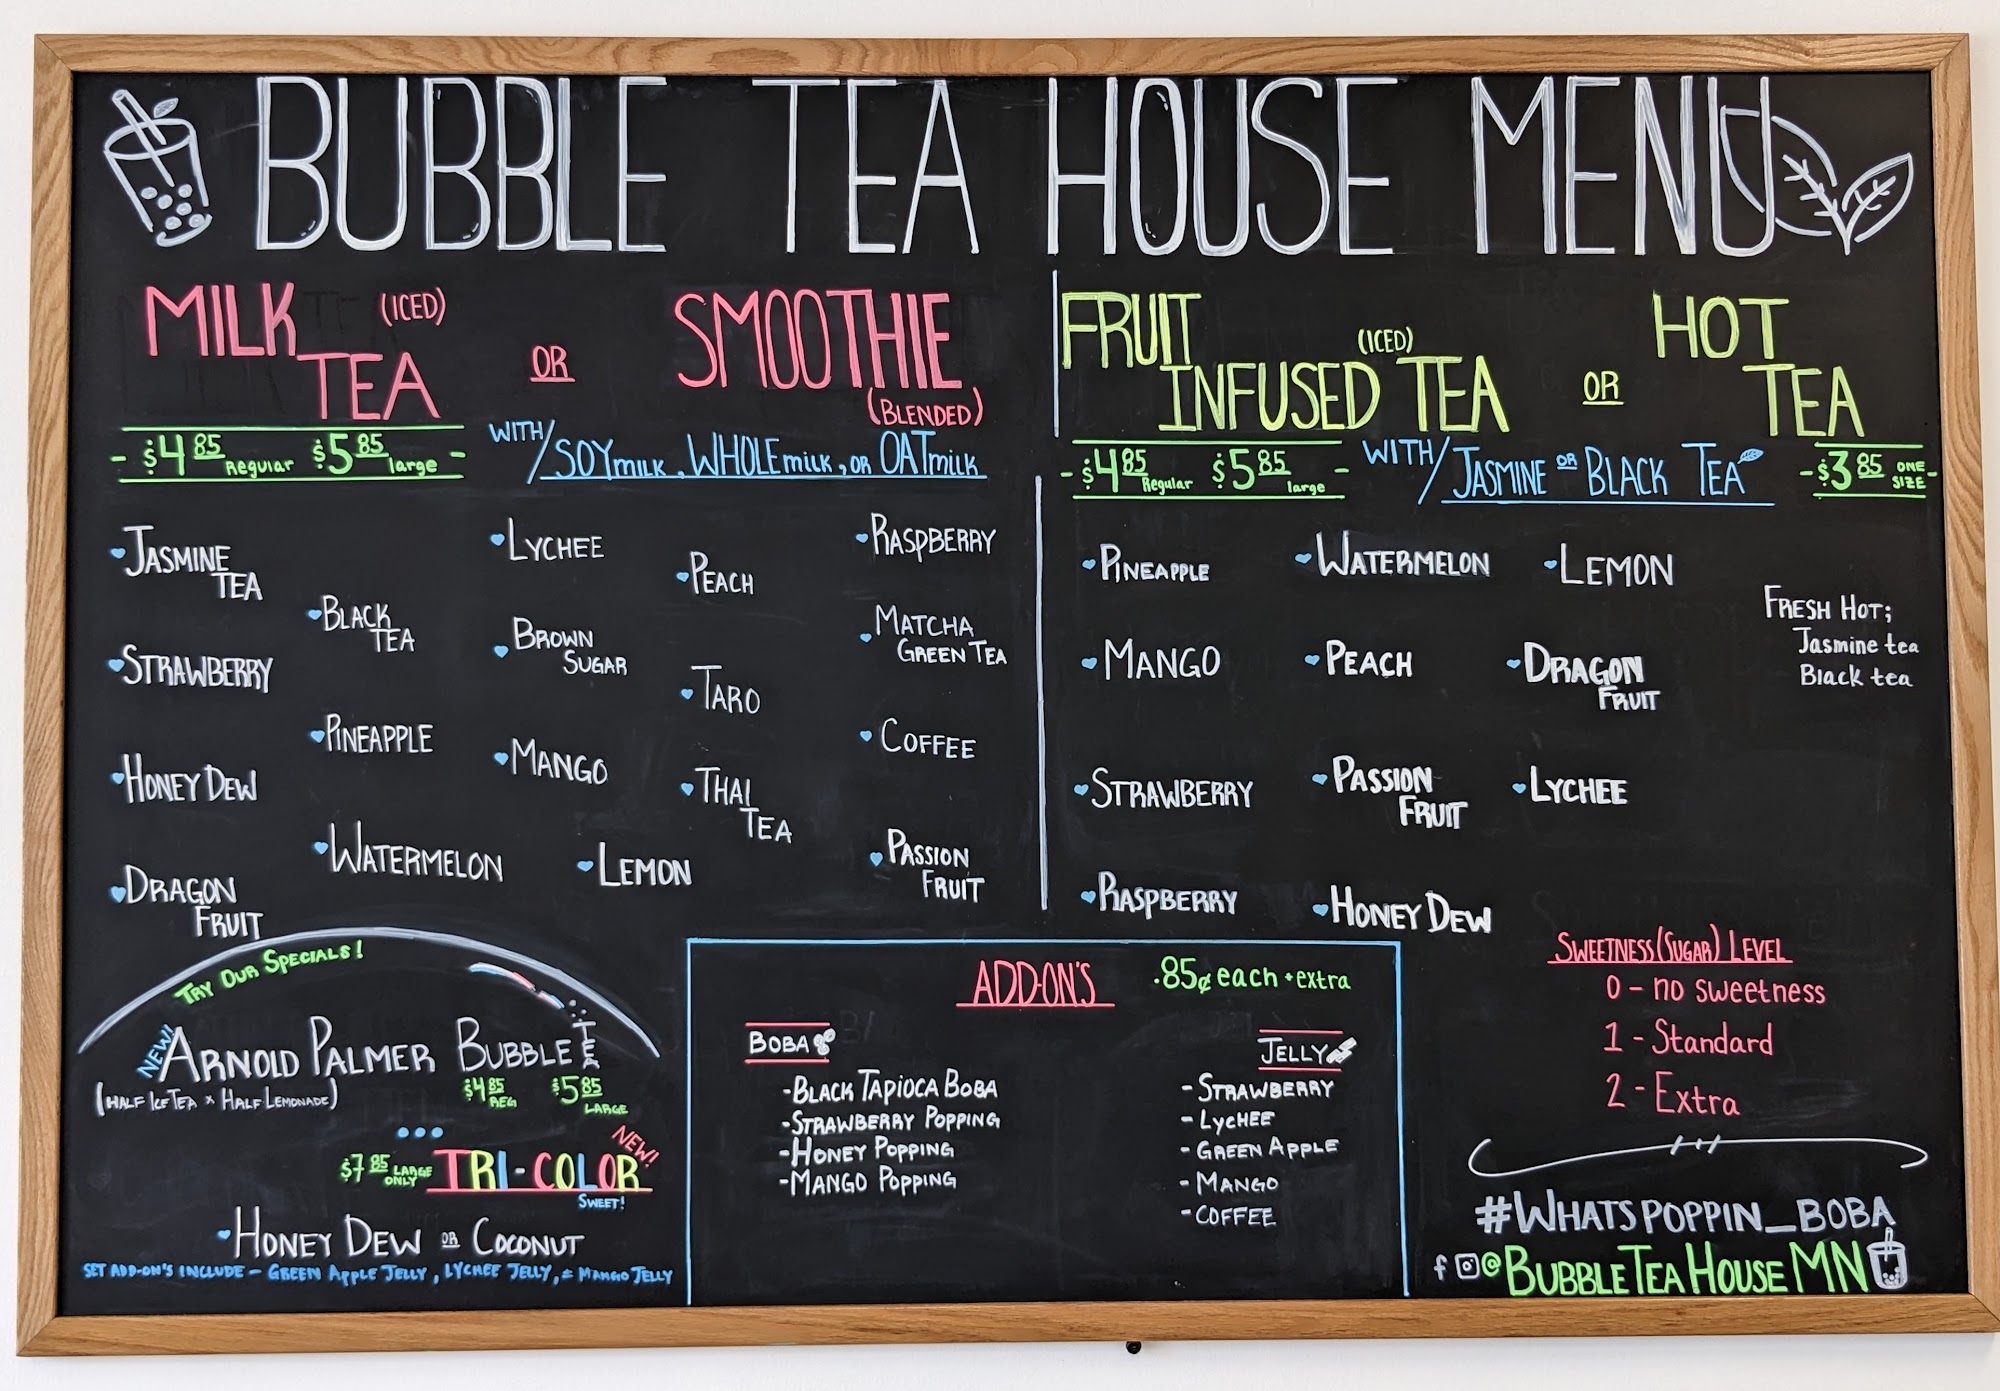 BUBBLE TEA HOUSE MENU
MILK TEA (ICED) OR SMOOTHIE (BLENDED)
- $4.85 Regular $5.85 large -
WITH/ SOY milk, WHOLE milk, OR OAT milk
JASMINE TEA
STRAWBERRY
HONEY DEW
DRAGON FRUIT
BLACK TEA
PINEAPPLE
WATERMELON
LYCHEE
BROWN SUGAR
MANGO
LEMON
PEACH
TARO
THAI TEA
RASPBERRY
MATCHA GREEN TEA
COFFEE
PASSION FRUIT
FRUIT INFUSED TEA (ICED) OR HOT TEA
- $4.85 Regular $5.85 large -
WITH/ JASMINE OR BLACK TEA
- $3.85 ONE SIZE -
PINEAPPLE
MANGO
STRAWBERRY
RASPBERRY
WATERMELON
PEACH
PASSION FRUIT
HONEY DEW
LEMON
DRAGON FRUIT
LYCHEE
FRESH HOT;
Jasmine tea
Black tea
TRY OUR SPECIALS!
NEW! ARNOLD PALMER BUBBLE TEA
(HALF ICE TEA × HALF LEMONADE)
$4.85 REG $5.85 LARGE
$7.85 LARGE ONLY TRI-COLOR NEW!
SWEET!
HONEY DEW OR COCONUT
SET ADD-ON'S INCLUDE - GREEN APPLE JELLY, LYCHEE JELLY, & MANGO JELLY
ADD-ON'S .85¢ each + extra
BOBA
- BLACK TAPIOCA BOBA
- STRAWBERRY POPPING
- HONEY POPPING
- MANGO POPPING
JELLY
- STRAWBERRY
- LYCHEE
- GREEN APPLE
- MANGO
- COFFEE
SWEETNESS (SUGAR) LEVEL
0 - no sweetness
1 - Standard
2 - Extra
#WHATSPOPPIN_BOBA
f @BUBBLETEAHOUSEMN